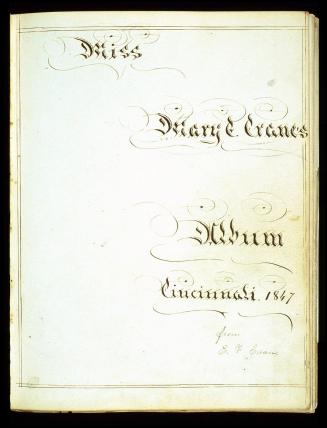 Miss
Mary E Cranes
Album
Cincinnati. 1847
from
E. F. Crane